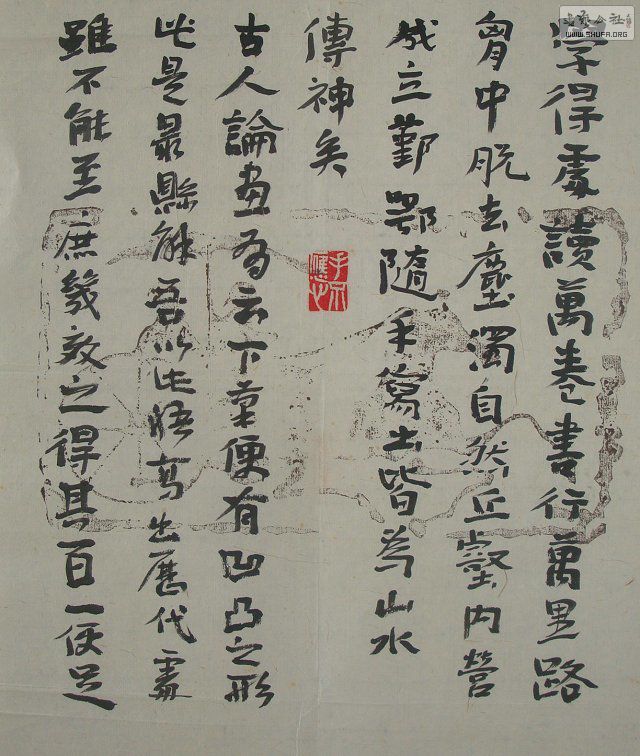 学得處讀萬卷書行萬里路
胷中脱去塵濁自然丘壑内營
成立鄞鄂隨手寫出皆為山水
傳神矣
古人論畫有云下筆便有凹凸之形
此是最縣解吾以此悟高出歷代處
雖不能至庶幾效之得其百一便足
WWW.SHUFA.ORG